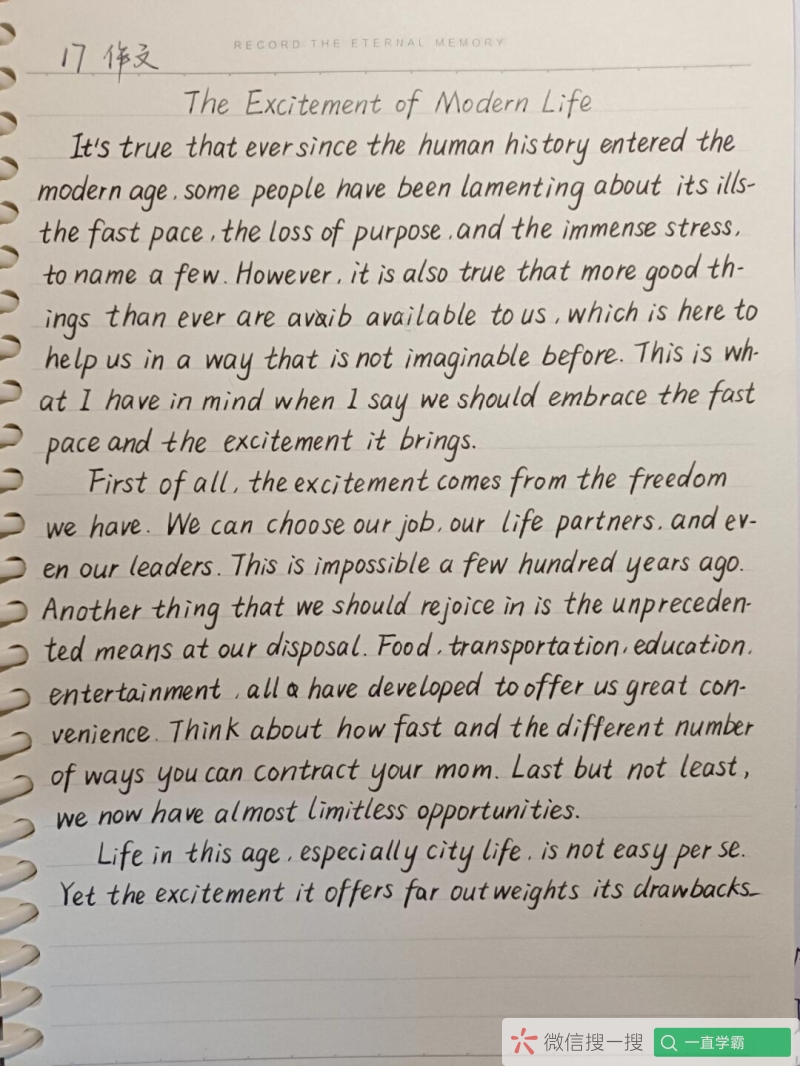 RECORD THE ETERNAL MEMORY
17 作文
The Excitement of Modern Life
It's true that ever since the human history entered the
modern age, some people have been lamenting about its ills-
the fast pace, the loss of purpose, and the immense stress,
to name a few. However, it is also true that more good th-
ings than ever are avaib available to us, which is here to
help us in a way that is not imaginable before. This is wh-
at I have in mind when I say we should embrace the fast
pace and the excitement it brings.
First of all, the excitement comes from the freedom
we have. We can choose our job, our life partners, and ev-
en our leaders. This is impossible a few hundred years ago.
Another thing that we should rejoice in is the unpreceden-
ted means at our disposal. Food, transportation, education,
entertainment, all a have developed to offer us great con-
venience. Think about how fast and the different number
of ways you can contract your mom. Last but not least,
we now have almost limitless opportunities.
Life in this age, especially city life, is not easy per se.
Yet the excitement it offers far outweights its drawbacks
微信搜一搜
一直学霸